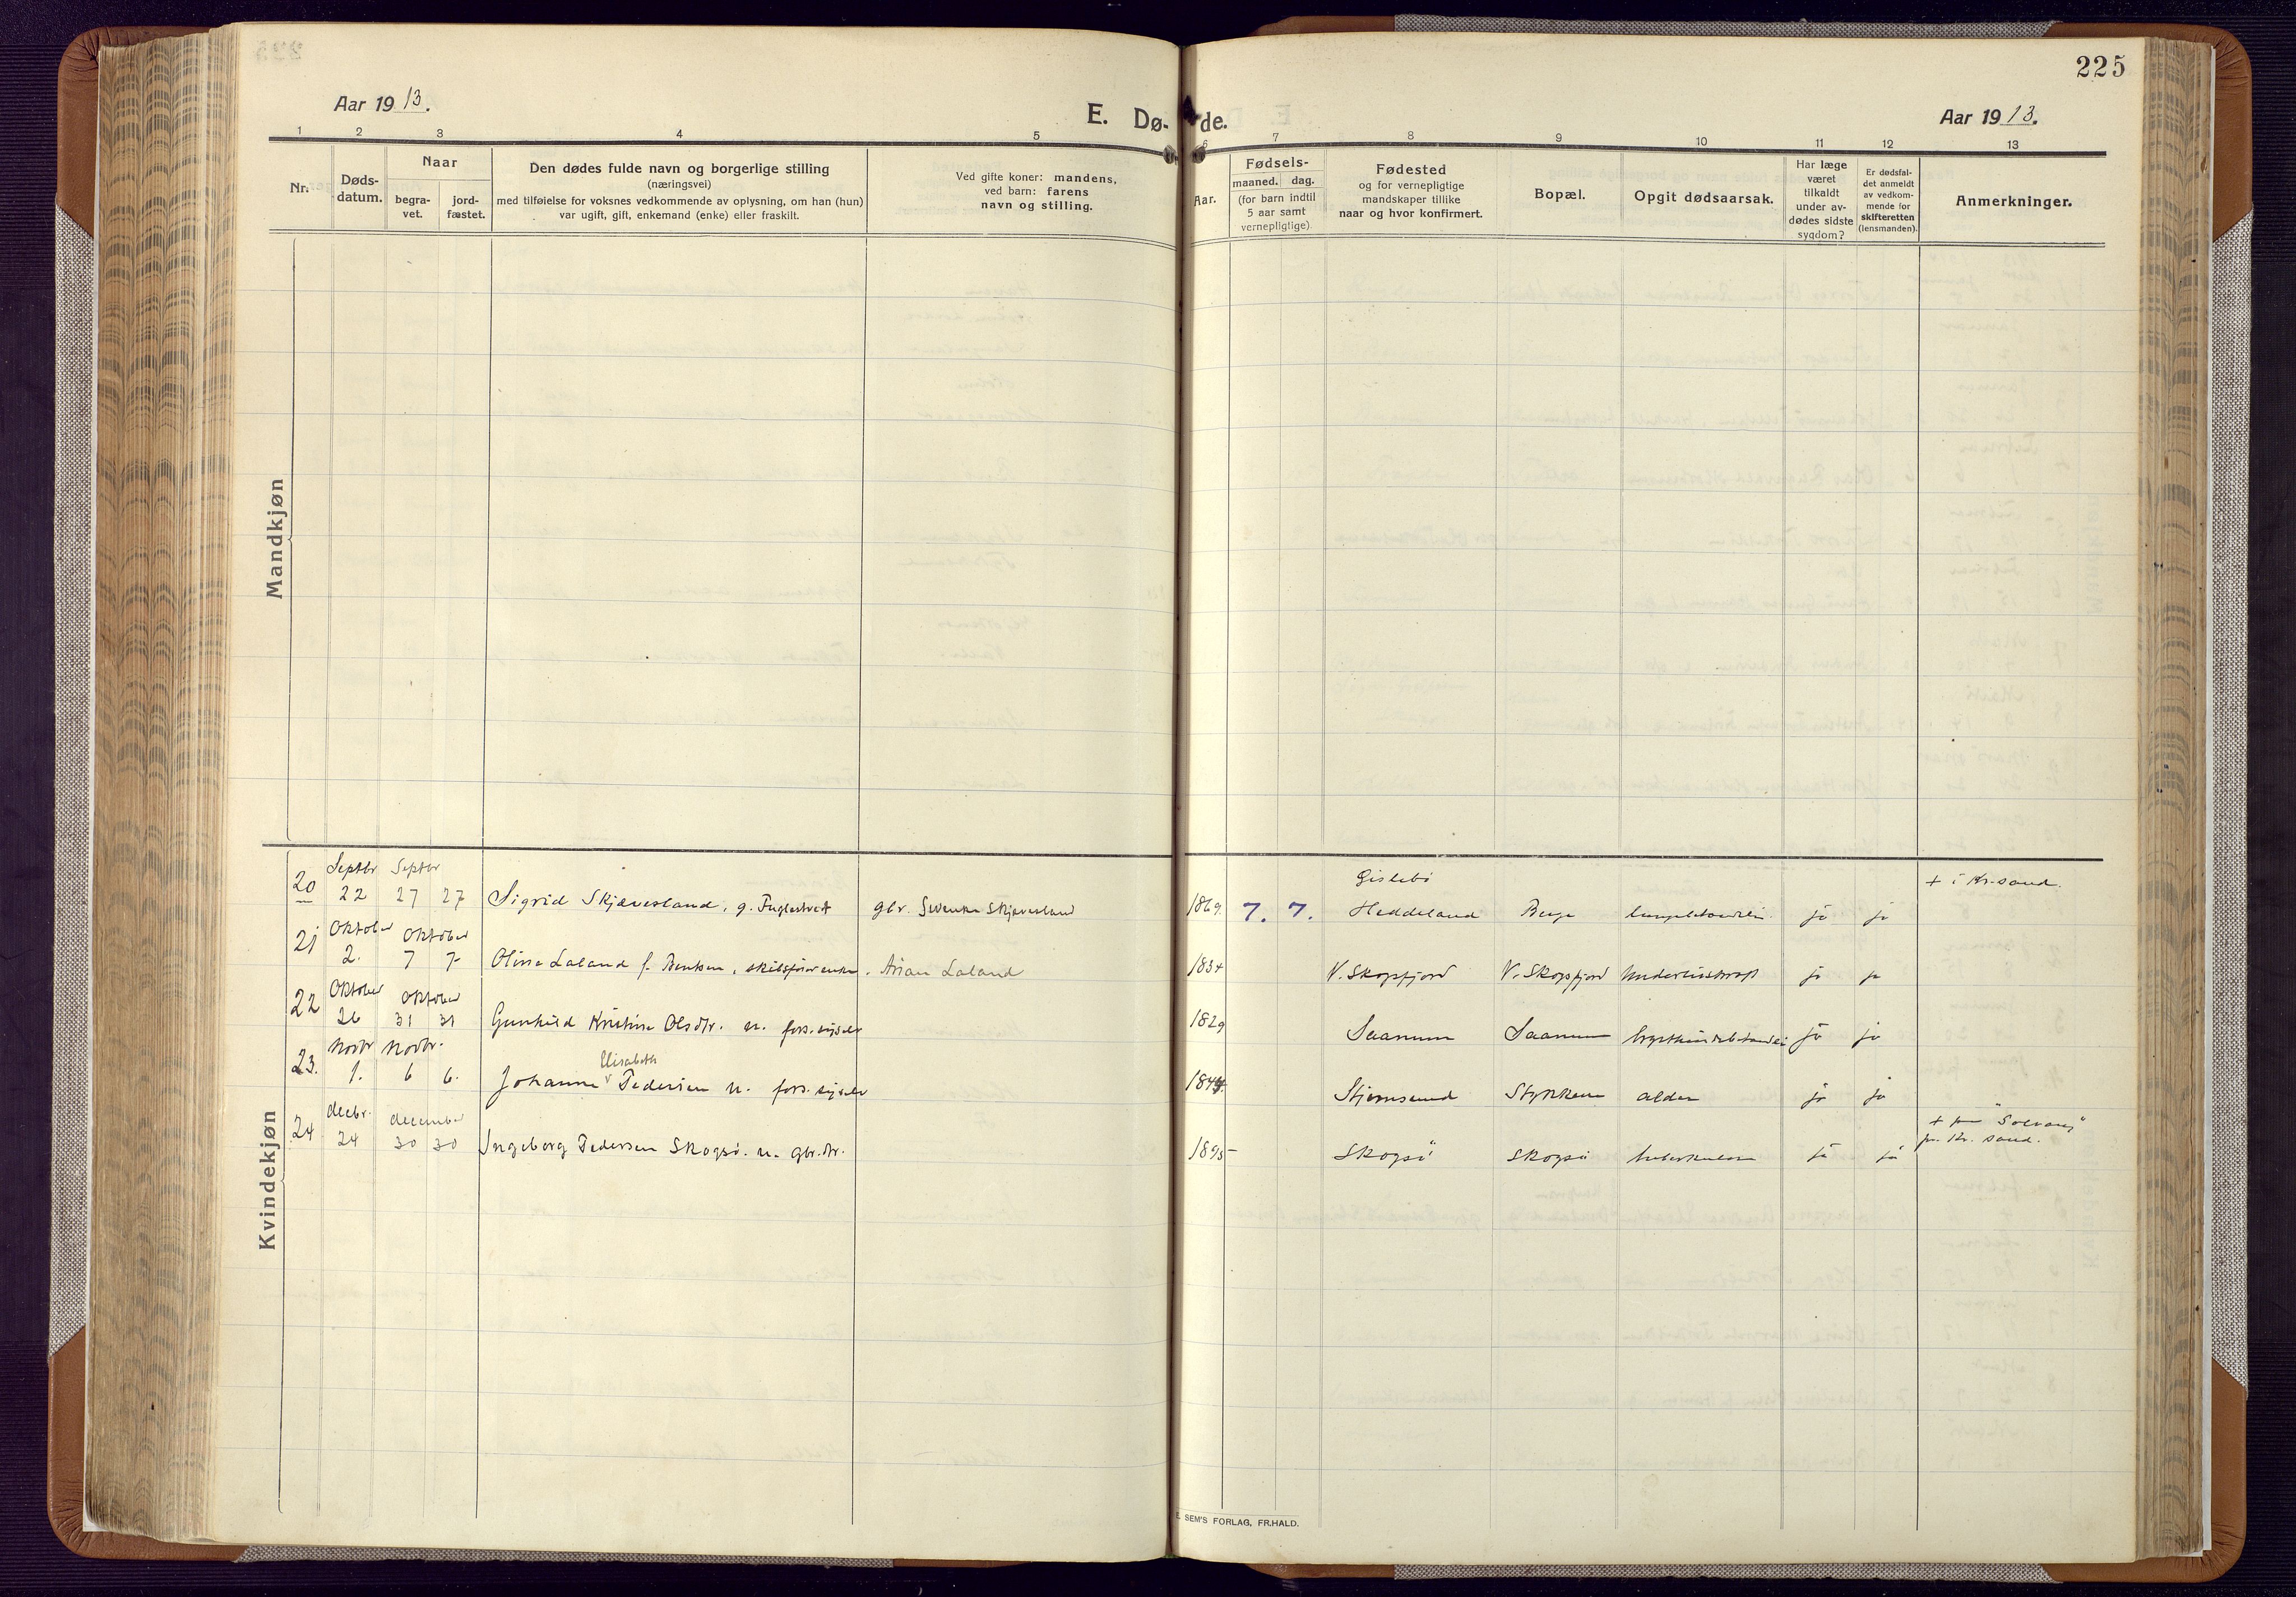 225
Aar 1913.
E. Dø-
de.
Aar 1913.
1 2 3 4 5 6 7 8 9 10 11 12 13
Nr.
Døds-
datum.
Naar
begra-
vet.
jord-
fæstet.
Den dødes fulde navn og borgerlige stilling
(næringsvei)
med tilføielse for voksnes vedkommende av oplysning, om han (hun)
var ugift, gift, enkemand (enke) eller fraskilt.
Ved gifte koner: mandens,
ved barn: farens
navn og stilling.
Aar.
Fødsels-
maaned. dag.
(for barn indtil
5 aar samt
vernepligtige)
Fødested
og for vernepligtige
mandskaper tillike
naar og hvor konfirmert.
Bopæl.
Opgit dødsaarsak.
Har læge
været
tilkaldt
under av-
dødes sidste
sygdom?
Er dødsfal-
det anmeldt
av vedkom-
mende for
skifteretten
(lensmanden).
Anmerkninger.
Mandkjøn
Kvindekjøn
Septbr Septbr
Gislebö
+ i Kr.sand.
20 22 27 27 Sigrid Skjævesland, g. gbr. Skjævesland 1869. 7. 7. Heddeland Berge ja ja
Oktober Oktober
21 2. 7 7 Oline Laland f. Bentsen, skibsförerenke. Arian Laland 1834 V. Skogsfjord V. Skogsfjord ja ja
Oktober Oktober
22 26 31 31 Gunhild Kristine Olsdtr. u. fors. sigselv 1829 Saanum Saanum ja ja
Novbr Novbr.
Elisabeth
23. 1. 6 6. Johanne Pedersen u. fors. sigselv Stjernsund Stykkene alder ja ja
decbr. december
+ paa "Solvang"
pr. Kr. sand.
24 24 30 30 Ingeborg Pedersen Skogsö. u. gbr.dtr. 1895 Skogsö Skogsö tuberkulose ja ja
E. SEM'S FORLAG, FR.HALD.